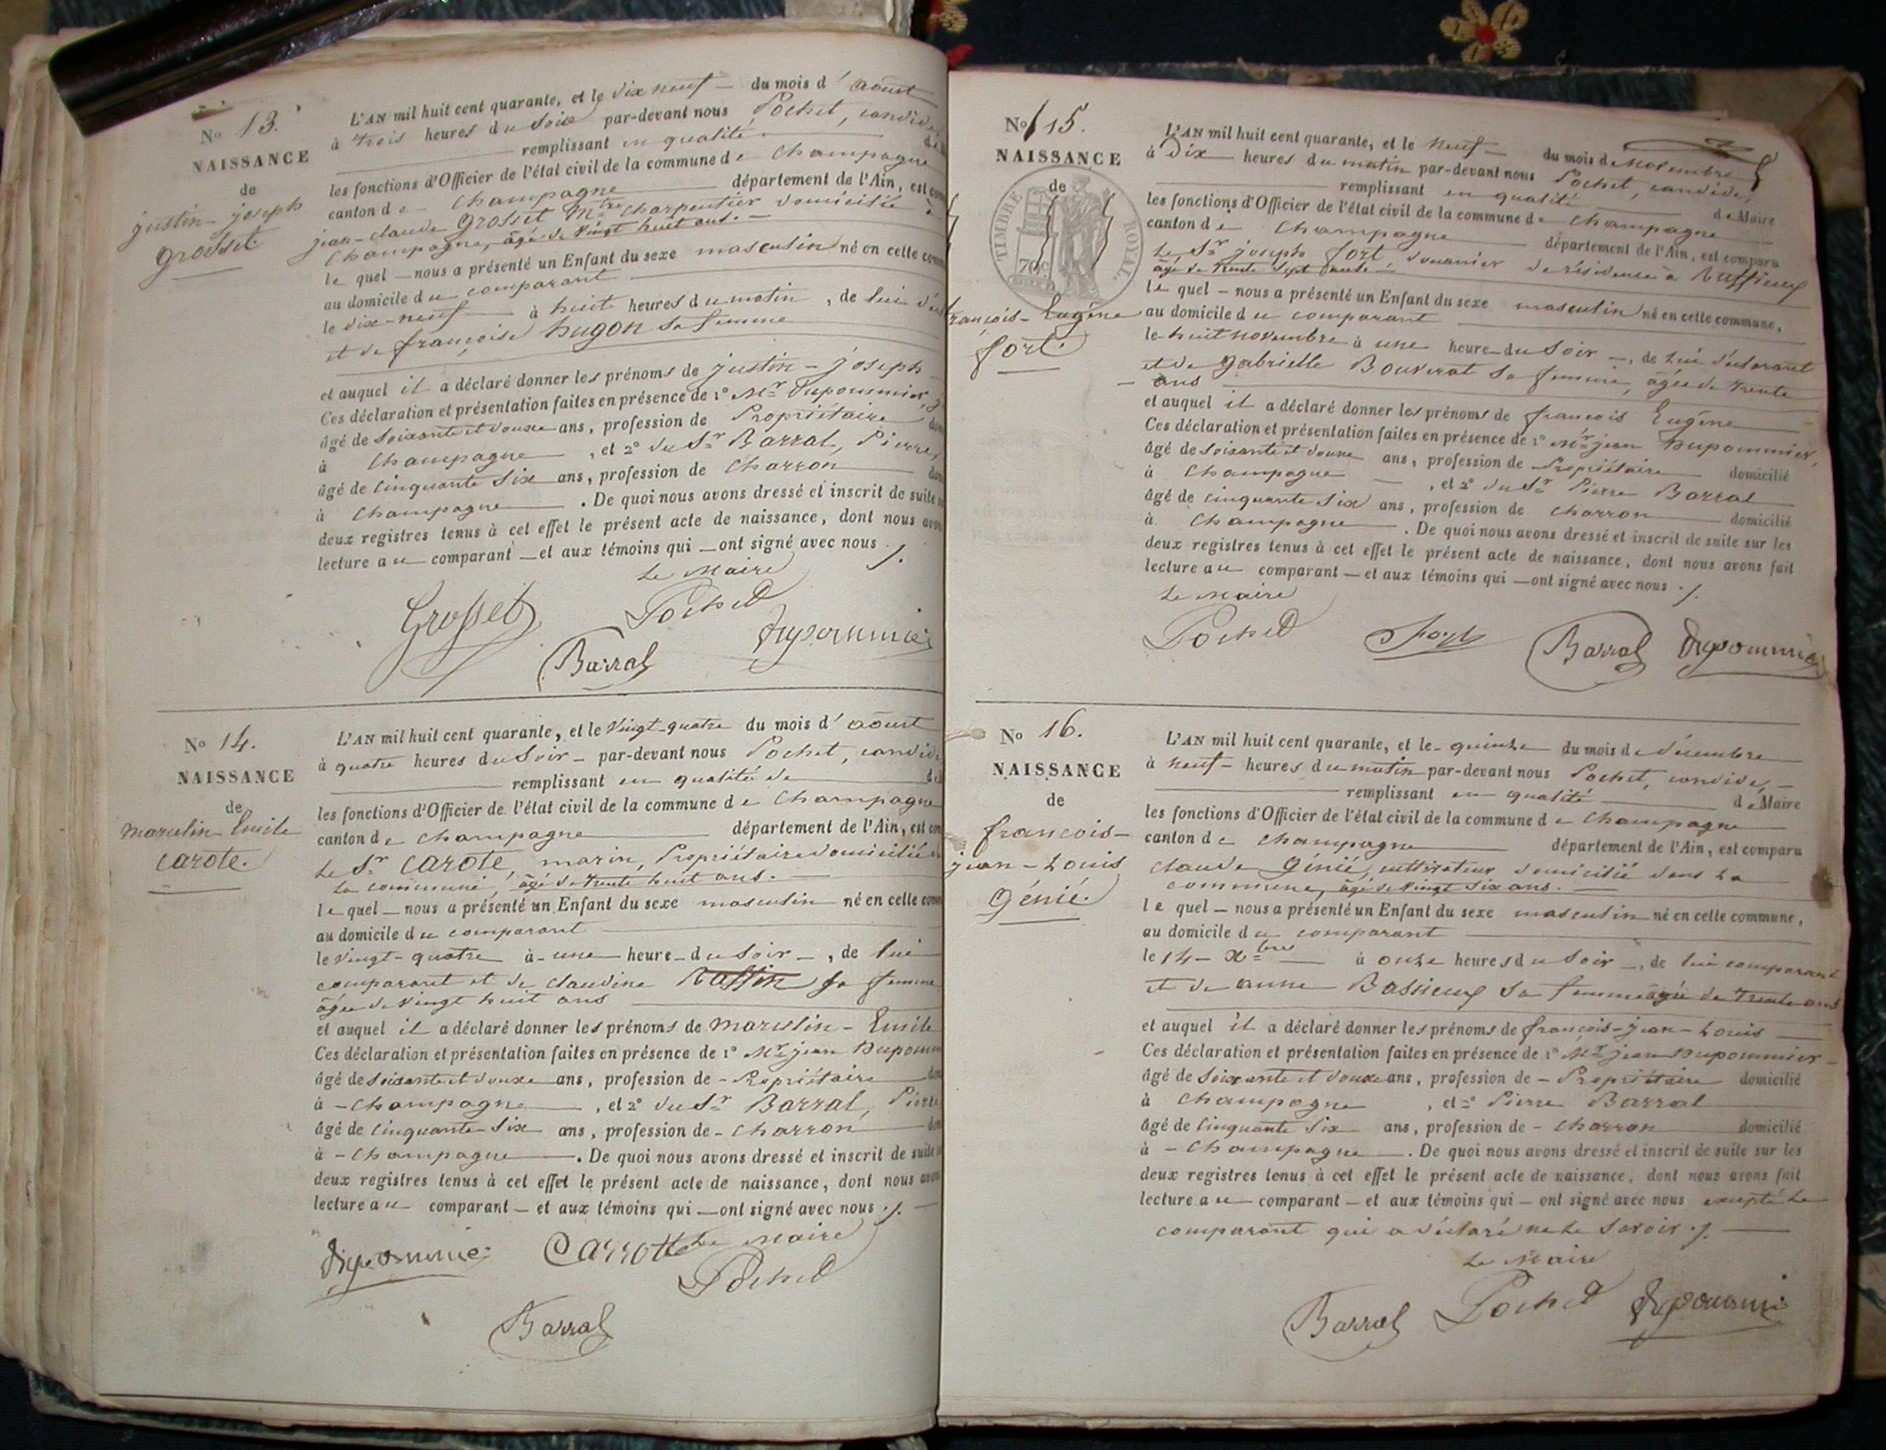 No 13.
NAISSANCE
de
justin-joseph
grosset.
L'AN mil huit cent quarante, et le dix neuf du mois d'aoust
à trois heures du soir par-devant nous Pochet, candide
remplissant en qualité
les fonctions d'Officier de l'état civil de la commune de Champagne
canton de Champagne département de l'Ain, est
jean-claude grosset Mtre charpentier domicilié à
Champagne, âgé de vingt huit ans.
lequel nous a présenté un Enfant du sexe masculin né en cette
au domicile du comparant
le dix-neuf à huit heures du matin, de lui
et de françoise hugon sa femme
et auquel il a déclaré donner les prénoms de justin-joseph
Ces déclaration et présentation faites en présence de 1° Mr Dupommier,
âgé de soixante et douze ans, profession de Propriétaire
à Champagne, et 2° du Sr Barral, Pierre,
âgé de cinquante six ans, profession de Charron
à Champagne. De quoi nous avons dressé et inscrit de suite
deux registres tenus à cet effet le présent acte de naissance, dont nous
lecture au comparant et aux témoins qui ont signé avec nous ./.
Le Maire
Grosset Pochet
Barral Dupommier
No 14.
NAISSANCE
de
marculin Emile
carote.
L'AN mil huit cent quarante, et le vingt-quatre du mois d'aoust
à quatre heures du soir par-devant nous Pochet, candide
remplissant en qualité de
les fonctions d'Officier de l'état civil de la commune de Champagne
canton de Champagne département de l'Ain, est
Le Sr carote, marin, Propriétaire domicilié
la commune, âgé de trente huit ans.
lequel nous a présenté un Enfant du sexe masculin né en cette
au domicile du comparant
le vingt-quatre à une heure du soir, de lui
comparant et de claudine Raffin sa femme
âgée de vingt huit ans
et auquel il a déclaré donner les prénoms de marculin-Emile
Ces déclaration et présentation faites en présence de 1° Mr jean
âgé de soixante et douze ans, profession de Propriétaire
à Champagne, et 2° du Sr Barral, Pierre
âgé de cinquante six ans, profession de Charron
à Champagne. De quoi nous avons dressé et inscrit de suite
deux registres tenus à cet effet le présent acte de naissance, dont nous
lecture au comparant et aux témoins qui ont signé avec nous ./.
Dupommier Carrotte Le Maire
Pochet
Barral
No 15.
NAISSANCE
de
TIMBRE ROYAL
70c
françois-Eugène
fort.
L'AN mil huit cent quarante, et le neuf du mois de Novembre
à Dix heures du matin par-devant nous Pochet, candide,
remplissant en qualité de Maire
les fonctions d'Officier de l'état civil de la commune de Champagne
canton de Champagne département de l'Ain, est comparu
Le Sr joseph fort, douanier de résidence à Ruffieux
âgé de trente sept ans
lequel nous a présenté un Enfant du sexe masculin né en cette commune,
au domicile du comparant
le huit novembre à une heure du soir, de lui déclarant
et de gabrielle Bouverat sa femme, âgée de trente
ans
et auquel il a déclaré donner les prénoms de françois Eugène
Ces déclaration et présentation faites en présence de 1° Mr jean Dupommier,
âgé de soixante et douze ans, profession de Propriétaire domicilié
à Champagne, et 2° du Sr Pierre Barral
âgé de cinquante six ans, profession de charron domicilié
à Champagne. De quoi nous avons dressé et inscrit de suite sur les
deux registres tenus à cet effet le présent acte de naissance, dont nous avons fait
lecture au comparant et aux témoins qui ont signé avec nous ./.
Le Maire
Pochet Fort Barral Dupommier
No 16.
NAISSANCE
de
françois-
jean-Louis
génié.
L'AN mil huit cent quarante, et le quinze du mois de décembre
à neuf heures du matin par-devant nous Pochet, candide,
remplissant en qualité de Maire
les fonctions d'Officier de l'état civil de la commune de Champagne
canton de Champagne département de l'Ain, est comparu
claude génié, cultivateur domicilié dans la
commune, âgé de vingt six ans.
lequel nous a présenté un Enfant du sexe masculin né en cette commune,
au domicile du comparant
le 14 Xbre à onze heures du soir, de lui comparant
et de anne Bassieux sa femme âgée de trente ans
et auquel il a déclaré donner les prénoms de françois-jean-Louis
Ces déclaration et présentation faites en présence de 1° Mr jean Dupommier
âgé de soixante et douze ans, profession de Propriétaire domicilié
à Champagne, et 2° Pierre Barral
âgé de cinquante six ans, profession de charron domicilié
à Champagne. De quoi nous avons dressé et inscrit de suite sur les
deux registres tenus à cet effet le présent acte de naissance, dont nous avons fait
lecture au comparant et aux témoins qui ont signé avec nous excepté le
comparant qui a déclaré ne le savoir ./.
Le Maire
Barral Pochet Dupommier